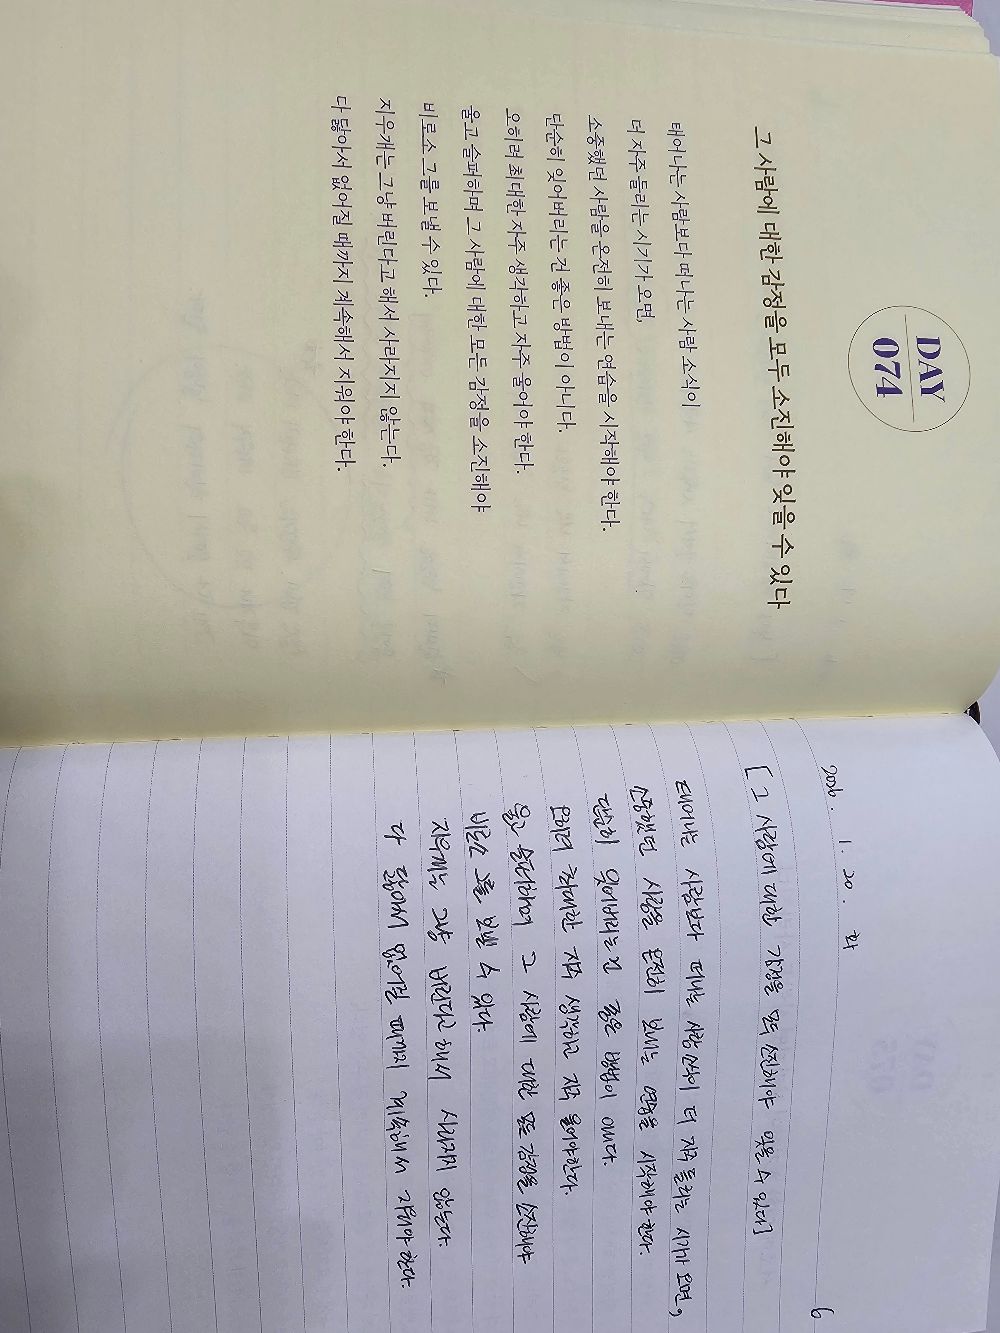 DAY
074
그 사람에 대한 감정을 모두 소진해야 잊을 수 있다
태어나는 사람보다 떠나는 사람 소식이
더 자주 들리는 시기가 오면,
소중했던 사람을 온전히 보내는 연습을 시작해야 한다.
단순히 잊어버리는 건 좋은 방법이 아니다.
오히려 최대한 자주 생각하고 자주 울어야 한다.
울고 슬퍼하며 그 사람에 대한 모든 감정을 소진해야
비로소 그를 보낼 수 있다.
지우개는 그냥 버린다고 해서 사라지지 않는다.
다 닳아서 없어질 때까지 계속해서 지워야 한다.
1. 20. 화
[그 사람에 대한 감정을 모두 소진해야 잊을 수 있다]
태어나는 사람보다 떠나는 사람 소식이 더 자주 들리는 시기가 오면,
소중했던 사람을 온전히 보내는 연습을 시작해야 한다.
단순히 잊어버리는건 좋은 방법이 아니다.
오히려 최대한 자주 생각하고 자주 울어야한다.
울고 슬퍼하며 그 사람에 대한 모든 감정을 소진해야
비로소 그를 보낼 수 있다.
지우개는 그냥 버린다고 해서 사라지지 않는다.
다 닳아서 없어질 때까지 계속해서 지워야 한다.